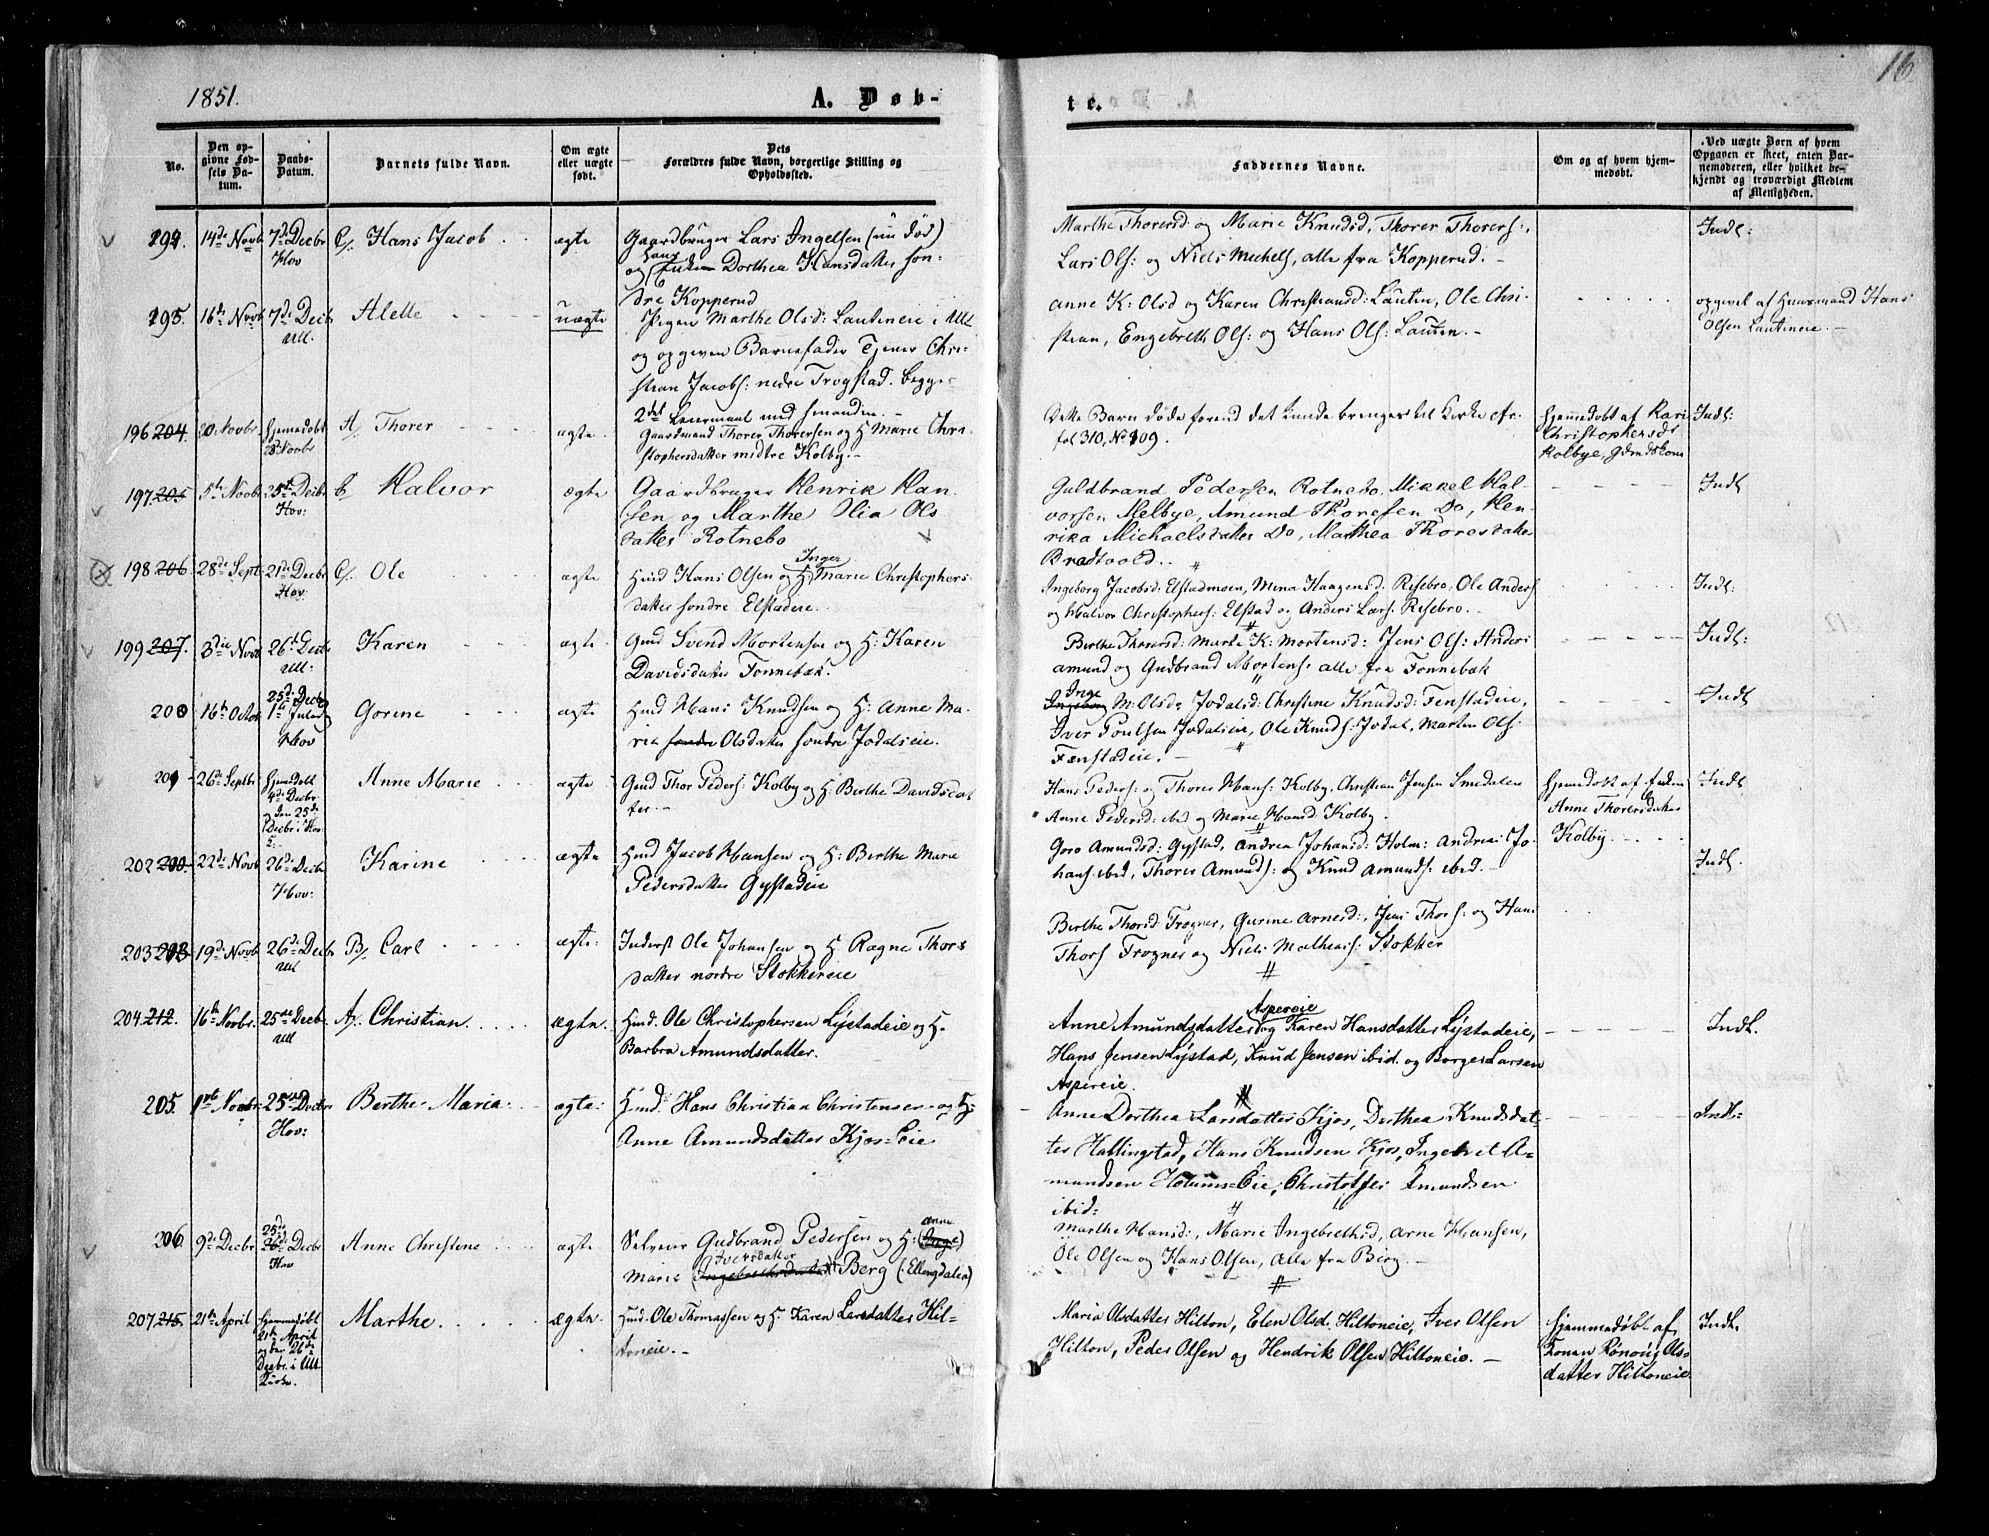 1851.
A. Døb-
te.
16
No.
Den op-
givne Fød-
sels Da-
tum.
Daabs-
Datum.
Barnets fulde Navn.
Om ægte
eller uægte
født.
Dets
Forældres fulde Navn, borgerlige Stilling og
Opholdssted.
Faddernes Navne.
Om og af hvem hjem-
medøbt.
Ved uægte Børn af hvem
Opgaven er skeet, enten Bar-
nemoderen, eller hvilket be-
kjendt og troværdigt Medlem
af Menigheden.
194 14de Novb 7de Decbr Hov C/. Hans Jacob ægte
Gaardbruger Lars Ingelsen (nu død)
og Dorthea Hansdatter søn-
dre Kopperud
Marthe Thorersd og Marie Knudsd, Thorer Thorers:,
Lars Ols: og Niels Michels, alle fra Kopperud.
Indl:
195. 16de Novb 7de Decbr Ull. Alette uægte
Pigen Marthe Olsd: Lauteneie i Ull
og opgiven Barnefader Tjener Chri-
stian Jacobs: nedre Trogstad. begges
2det Leiermaal
Anne K: Olsd og Karen Christiansd: Lauten, Ole Chri-
stian, Engebreth Ols: og Hans Ols: Lauten.
opgivet af Huusmand Hans
Olsen Lauteneie.
196 204. 20 Novbr Hjemmedøbt 23 Novbr A/. Thorer ægte
Gaardmand Thorer Thorersen og H Marie Chri-
stophersdatter midtre Kolby.
Dette Barn døde forend det kunde bringes til Kirke cfr.
fol 310, No 109.
Hjemmedøbt af Kari
Christophersdr
Kolbye, Gdmds Kone
Indl:
197. 205 5te Novbr 25de Decbr Hov: C/. Halvor ægte
Gaardbruger Henrik Han-
sen og Marthe Olia Ols
datter Rotnebo
Guldbrand Pedersen Rotnebo, Mikkel Hal-
vorsen Melbye, Amund Thoresen Do, Hen-
rika Michaelsdatter Do, Marthea Thoresdatter
Brædtvold.
Indl
198 206 28de Septr 21de Decbr Hov: C/. Ole ægte
Hmd Hans Olsen og H: Inger Marie Christophers
datter søndre Elstadeie.
Ingeborg Jacobsd: Elstadmoen, Mina Haagensd: Risebro, Ole Anders
og Halvor Christophers: Elstad og Anders Lars: Risebro.
Indl:
199 207. 3die Novb 26de Decbr Ull: Karen ægte
Gmd Svend Mortensen og H: Karen
Davidsdatter Fonnebæk.
Berthe Thorersd: Marte K: Mortensd: Jens Ols: Anders
Amund og Gudbrand Mortens: alle fra Fonnebæk
Indl:
200 16de Octob 25de Decbr 1ste Juledag Hov Gorine ægte
Hmd Hans Knudsen og H: Anne Ma-
rie søndre Olsdatter søndre Jodalseie.
Inge M: Olsd: Jodalsd: Christine Knudsd: Fenstadeie,
Iver Poulsen Jodalseie, Ole Knuds: Jodal, Marten Ols:
Fenstadeie.
Indl
201 26de Septbr Hjemdøbt 4de Decbr og den 25de Decbr i Hov Anne Marie ægte
Gmd Thor Peders: Kolby og H: Berthe Davidsdat-
ter.
Hans Peders: og Thorer Hans: Kolby, Christian Jensen Smedalen
Anne Pedersd: ibid og Marie Hansd Kolby.
Hjemdøbt af
Anne Thorersdatter
Kolby.
Indl
202 22de Novb 26de Decbr Hov: Karine ægte
Hmd Jacob Hansen og H: Berthe Marie
Pedersdatter Gystadeie
Goro Amundsd: Gystad, Andrea Johansd: Holm: Andreas Jo-
hans ibid, Thorer Amunds: og Knud Amunds: ibid.
Indl.
203 19de Novb 26de Decbr Ull B/. Carl ægte
Inderst Ole Johansen og H Ragne Thors
datter nordre Stokkereie
Berthe Thorsd: Trogner, Gurine Arnesd:, Jens Thors: og Hans
Thors Trogner og Niels Mathias: Stokker
204. 212. 16de Novbr. 25de Decbr Ull A/. Christian ægte.
Hmd. Ole Christophersen Lystadeie og H.
Barbra Amundsdatter.
Anne Amundsdatter Aspereie og Karen Hansdatter Lystadeie,
Hans Jensen Lystad, Knud Jensen ibid. og Borger Larsen
Aspereie.
Indl.
205. 1ste Novbr. 25de Decbr Hov: Berthe Maria ægte
Hmd: Hans Christian Christensen og H:
Anne Amundsdatter Kjos=Eie
Anne Dorthea Larsdatter Kjos, Dorthea Knudsdat-
ter Hallingstad, Hans Knudsen Kjos, Ingebret A-
mundsen Holums=Eie, Christoffer Amundsen
ibid:
Indl:
206. 9de Decbr 25de 26de Decbr Hov Anne Christine ægte
Selveier Gudbrand Pedersen og H: Anne (Inge)
Marie Iversdatter Berg (Ellingdalen)
Marthe Hansd:, Marie Ingebrethsd, Arne Hansen,
Ole Olsen og Hans Olsen, alle fra Berg.
207 215. 21de April Hjemmedøbt 21de April og den 26de Decbr. i Ull Kirke. Marthe ægte.
Hmd. Ole Thomassen og H. Karen Larsdatter Hil-
toneie.
Maria Olsdatter Hilton, Elen Olsd. Hiltoneie, Iver Olsen
Hilton, Peder Olsen og Hendrik Olsen Hiltoneie.
Hjemmedøbt af
Konen Rønnoug Ols-
datter Hiltoneie
Indl.